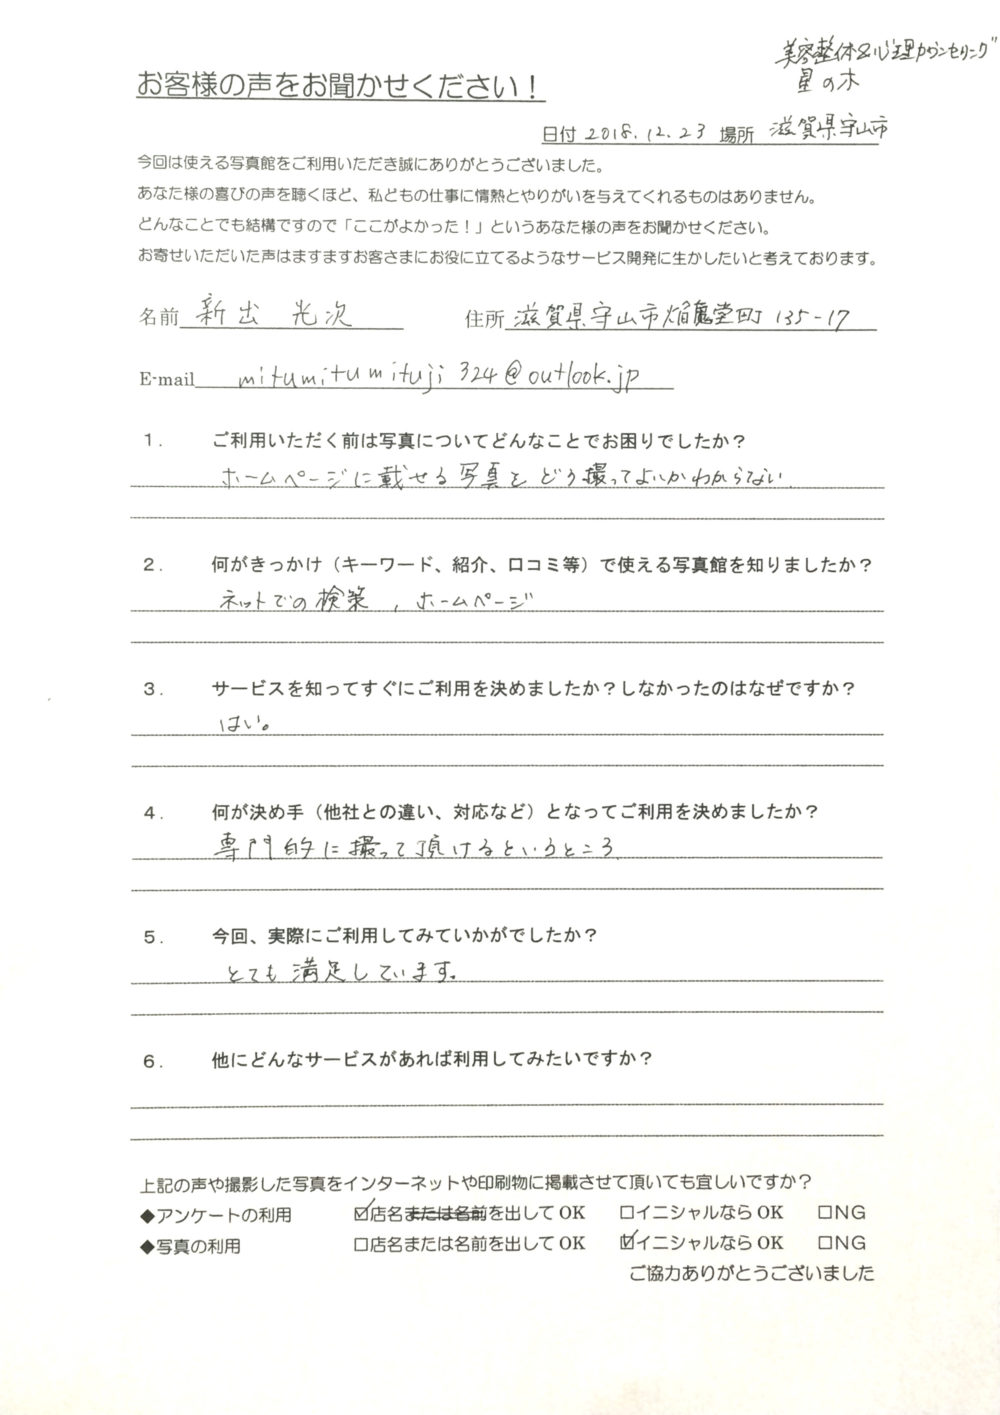 美容整体&心理カウンセリング
星の木
お客様の声をお聞かせください！
日付 2018.12.23 場所 滋賀県守山市
今回は使える写真館をご利用いただき誠にありがとうございました。
あなた様の喜びの声を聴くほど、私どもの仕事に情熱とやりがいを与えてくれるものはありません。
どんなことでも結構ですので「ここがよかった！」というあなた様の声をお聞かせください。
お寄せいただいた声はますますお客さまにお役に立てるようなサービス開発に生かしたいと考えております。
名前 新出 光次 住所 滋賀県守山市焔魔堂町 135-17
E-mail mitumitumituji324@outlook.jp
1. ご利用いただく前は写真についてどんなことでお困りでしたか？
ホームページに載せる写真をどう撮ってよいかわからない.
2. 何がきっかけ（キーワード、紹介、口コミ等）で使える写真館を知りましたか？
ネットでの検策, ホームページ
3. サービスを知ってすぐにご利用を決めましたか？しなかったのはなぜですか？
はい。
4. 何が決め手（他社との違い、対応など）となってご利用を決めましたか？
専門的に撮って頂けるというところ.
5. 今回、実際にご利用してみていかがでしたか？
とても満足しています。
6. 他にどんなサービスがあれば利用してみたいですか？
上記の声や撮影した写真をインターネットや印刷物に掲載させて頂いても宜しいですか？
◆アンケートの利用 ☑店名または名前を出して OK □イニシャルなら OK □NG
◆写真の利用 □店名または名前を出して OK ☑イニシャルなら OK □NG
ご協力ありがとうございました